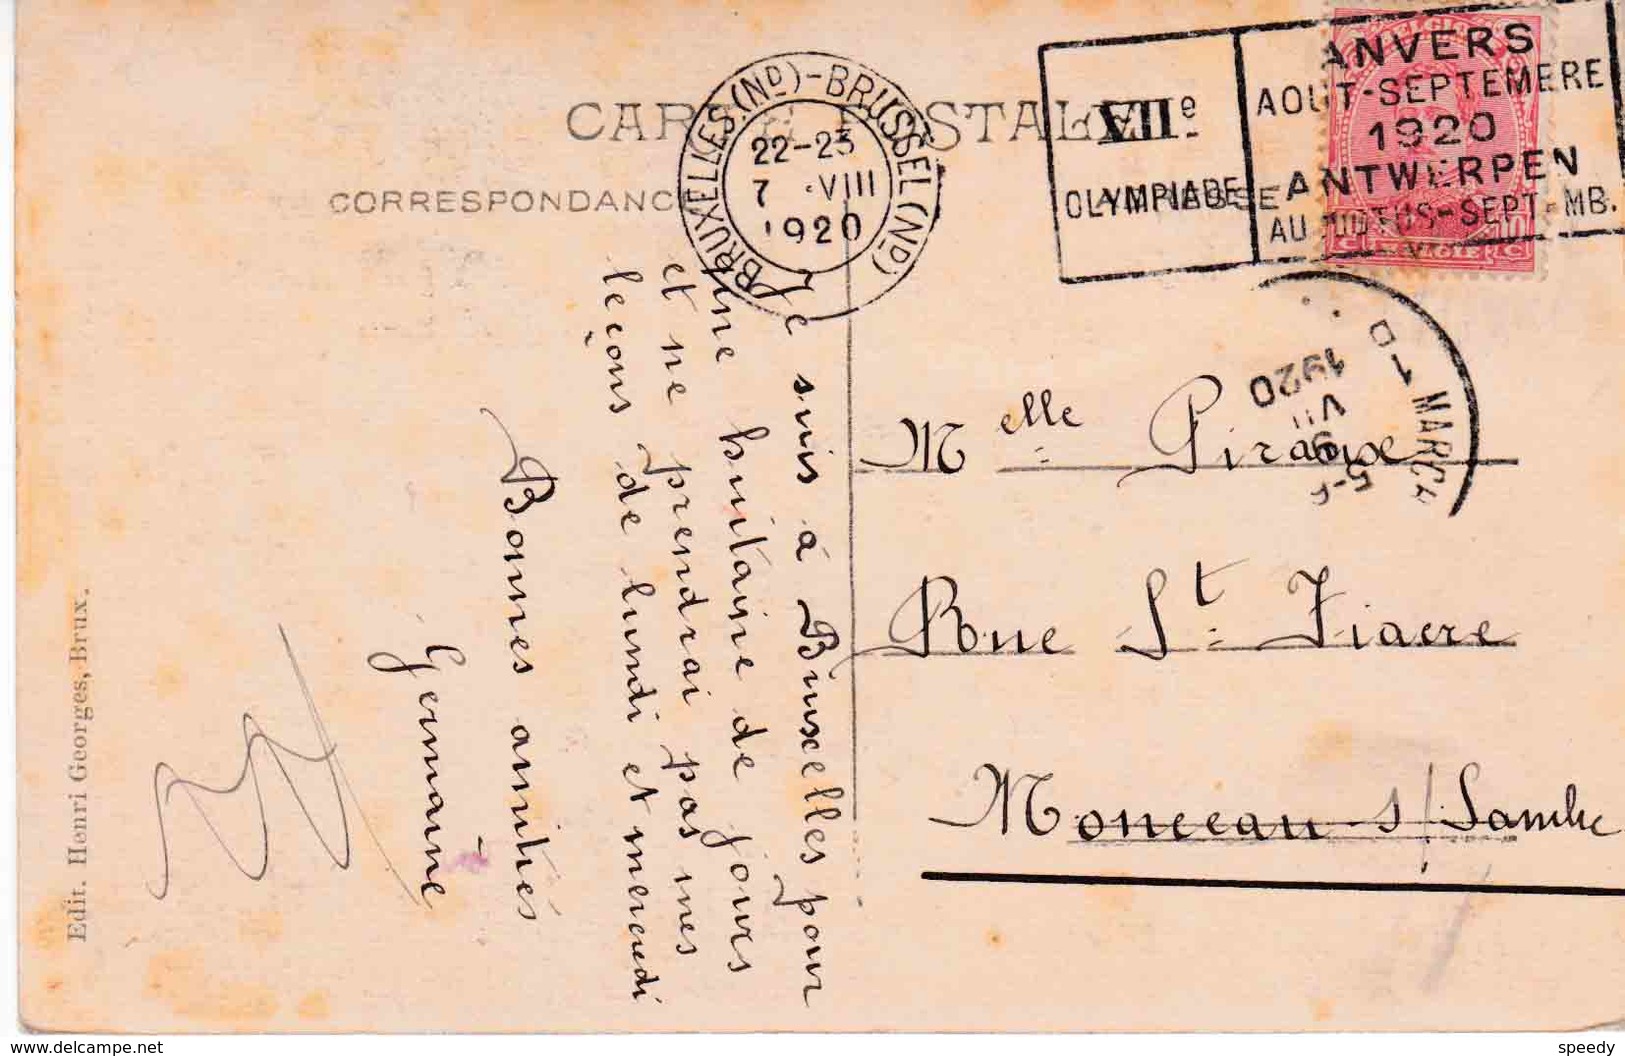 CARTE POSTALE
CORRESPONDANCE
ADRESSE
BRUXELLES (ND) - BRUSSEL (ND)
22-23
7 VIII
1920
VIIe
OLYMPIADE
ANVERS
AOUT-SEPTEMBRE
1920
ANTWERPEN
AUGUSTUS-SEPTEMB.
1920
VIII
9
5-
MARCH
1 D
Je suis à Bruxelles pour
une huitaine de jours
et ne prendrai pas mes
leçons de lundi et mercredi
Bonnes amitiés
Germaine
Melle Piraux
Rue St Fiacre
Monceau s/ Sambre
Edit. Henri Georges, Brux.
www.delcampe.net
speedy